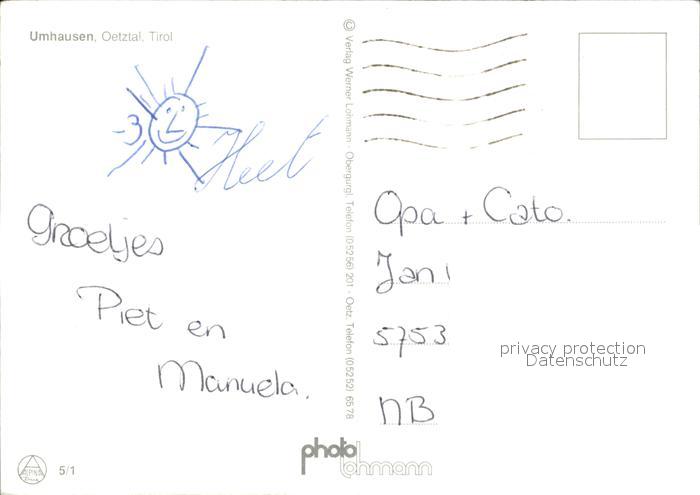 Umhausen, Oetztal, Tirol
-3
Heet
Groetjes
Piet en
Manuela.
© Verlag Werner Lohmann · Obergurgl, Telefon (05256) 201 - Oetz, Telefon (05252) 6578
Opa + Cato.
Jan
5753
NB
privacy protection
Datenschutz
photo
lohmann
5/1